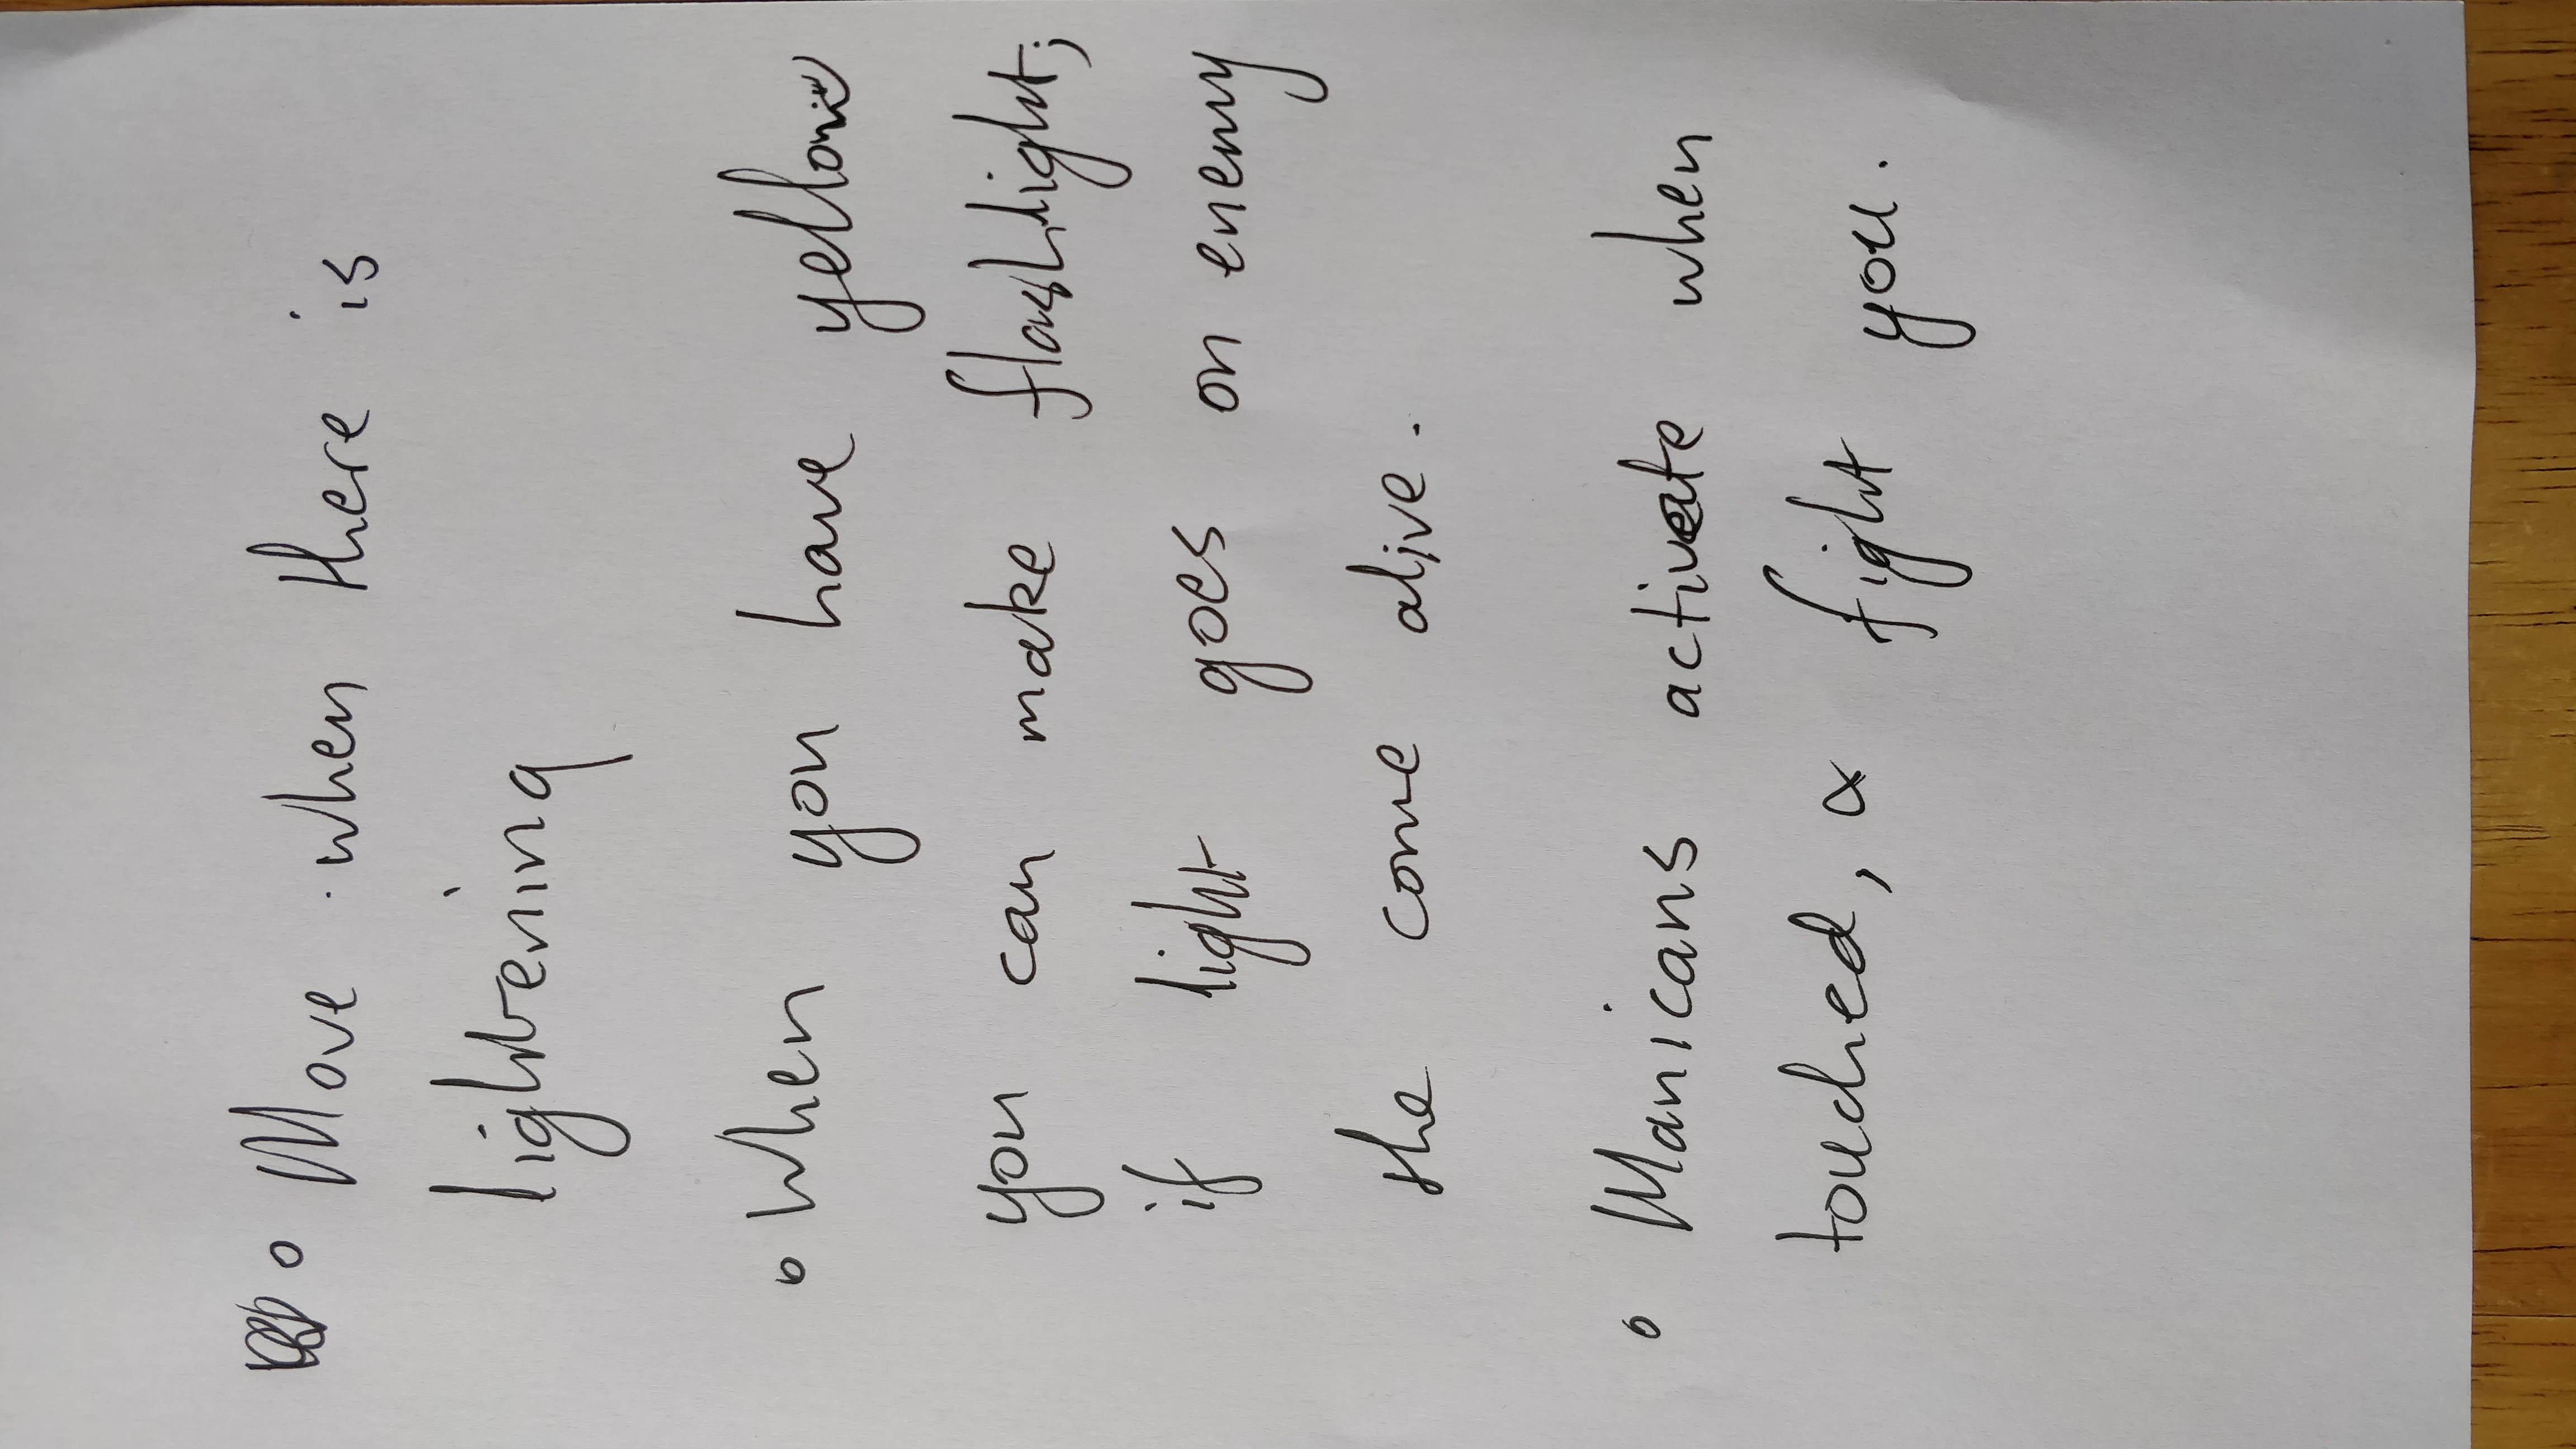 o Move when there is
lightening
o When you have yellow
you can make flashlight;
if light goes on enemy
she come alive.
o Manicans activate when
touched, α fight you.